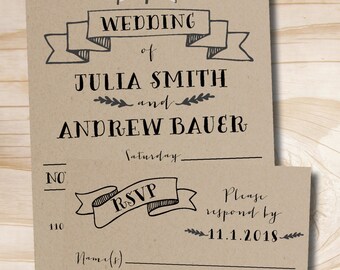 WEDDING
of
JULIA SMITH
and
ANDREW BAUER
Saturday
NO
110
RSVP
Please
respond by
11.1.2018
Name(s)